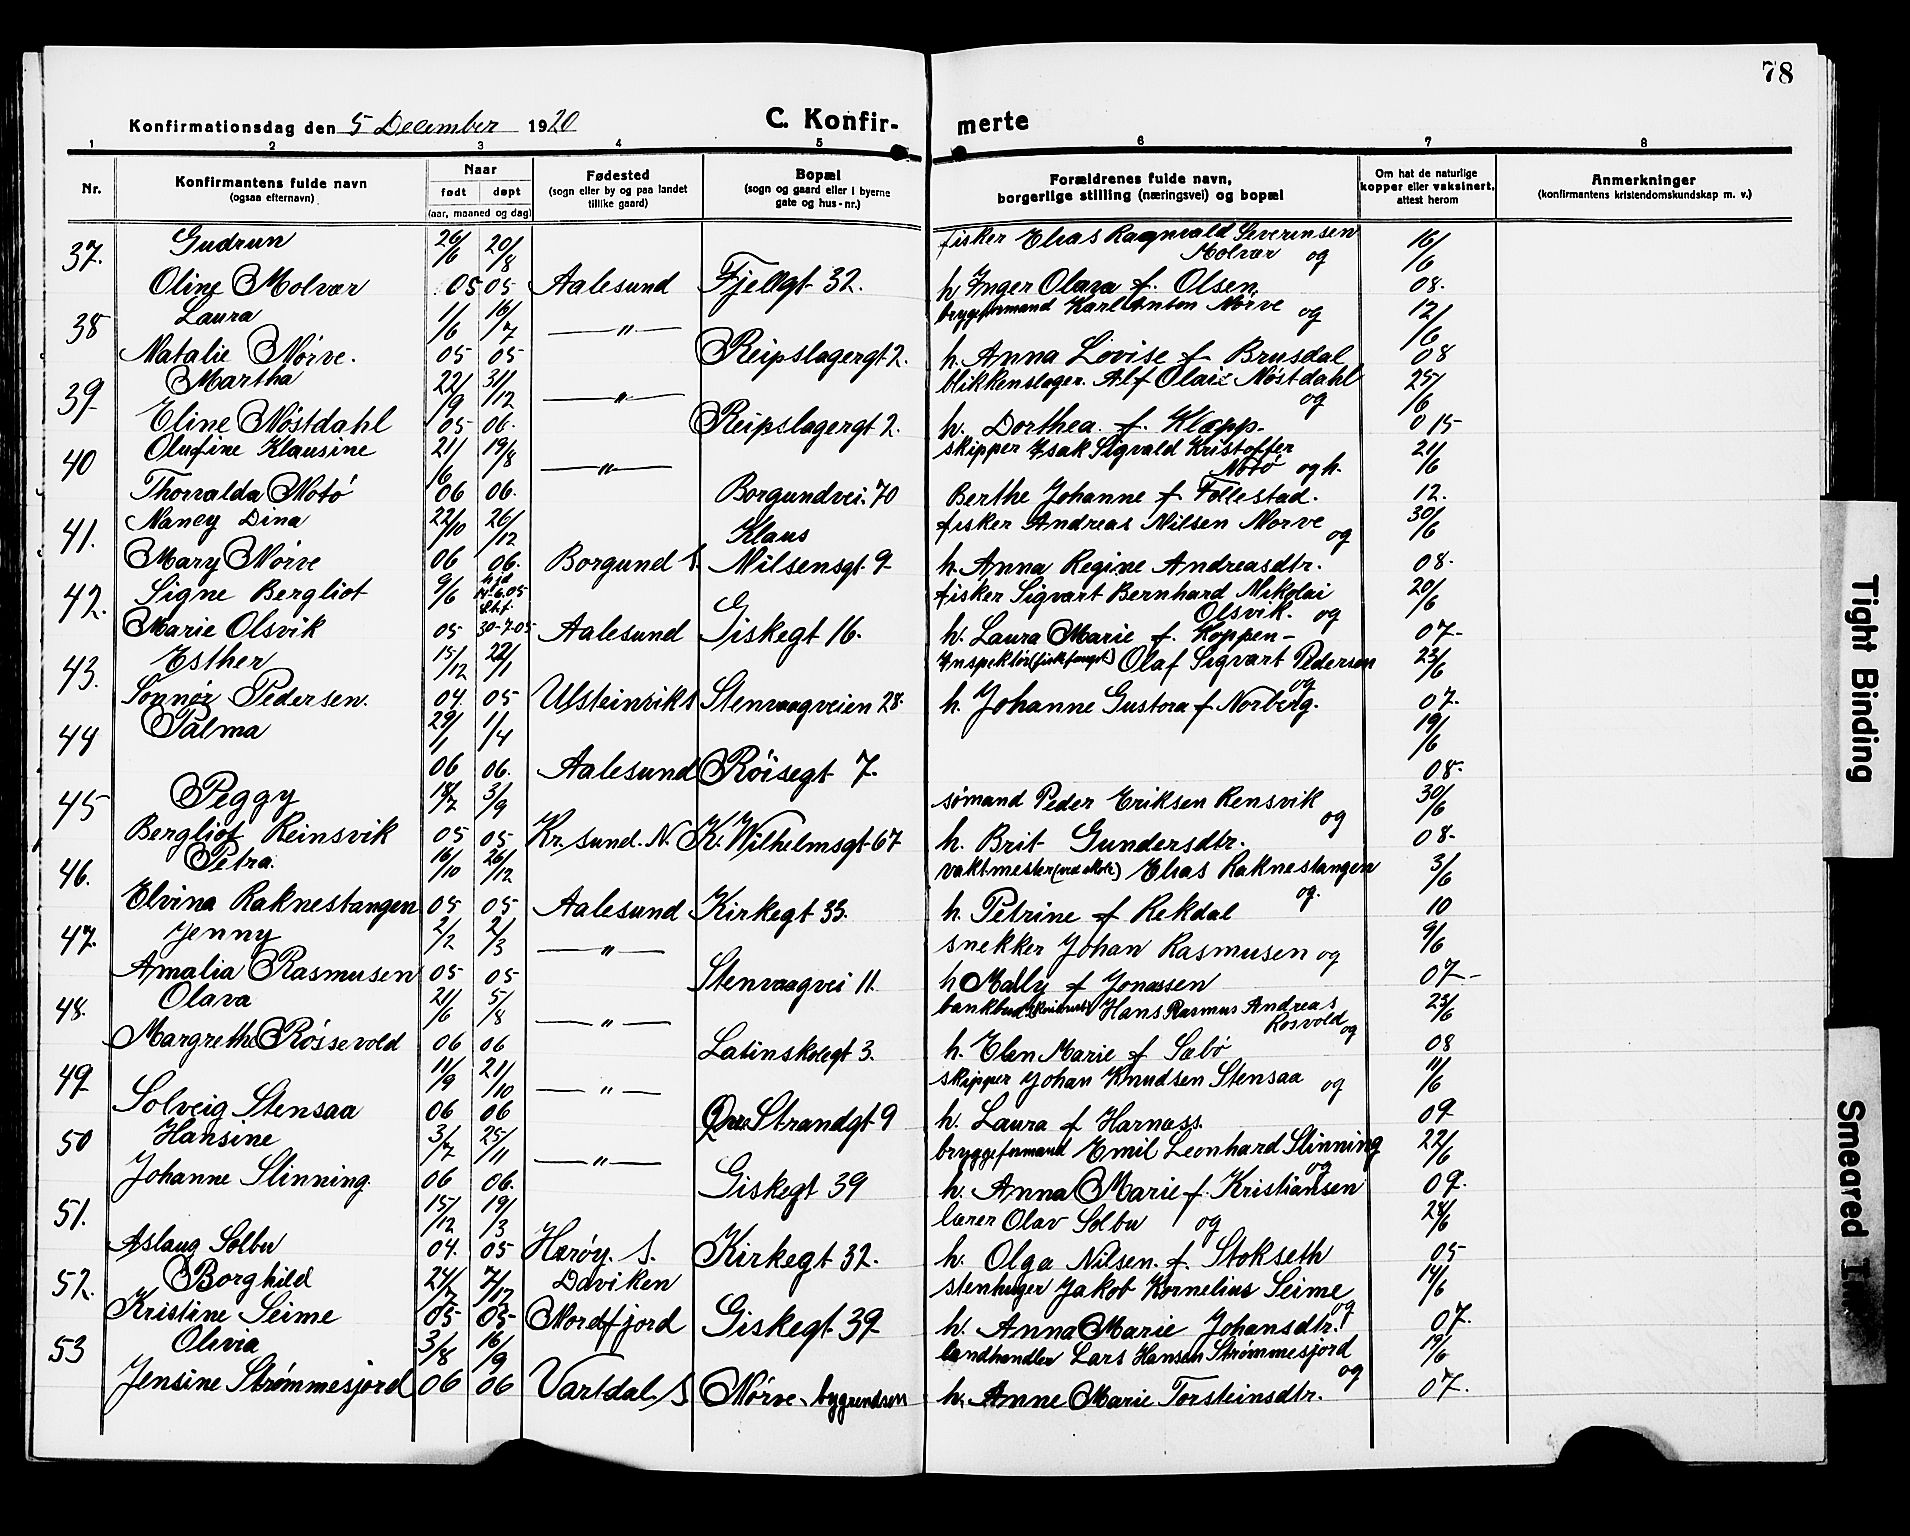 78
Konfirmationsdag den 5 December 1920 C. Konfir- merte
1 2 3 4 5 6 7 8
Nr. Konfirmantens fulde navn (ogsaa efternavn) Naar født døpt (aar, maaned og dag) Fødested (sogn eller by og paa landet tillike gaard) Bopæl (sogn og gaard eller i byerne gate og hus-nr.) Forældrenes fulde navn, borgerlige stilling (næringsvei) og bopæl Om hat de naturlige kopper eller vaksinert, attest herom Anmerkninger (konfirmantens kristendomskundskap m. v.)
37. Gudrun 26/6 20/8 fisker Elias Ragnvald Severinsen Molvær og 16/6
Oline Molvær 05 05 Aalesund Fjellgt 32. h. Inger Olava f. Olsen 08.
38 Laura 1/6 16/7 —"— bryggeformand Karl Anton Nørve og 12/6
Natalie Nørve. 05 05 Reipslagergt 2. h. Anna Lovise f Brusdal 08
39 Martha 22/9 31/12 —"— blikkenslager. Alf Olai Nøstdahl og 25/6
Eline Nøstdahl 05 06. Reipslagergt 2. h. Dorthea f. Klopp 015
40 Olufine Klausine 21/6 19/8 —"— skipper Isak Sigvald Kristoffer Notø og h. 21/6
Thorvalda Notø 06 06. Borgundvei. 70 Berthe Johanne f Follestad. 12.
41. Nancy Dina 22/10 26/12 Klaus fisker Andreas Nilsen Nørve og 30/6
Mary Nørve 06 06. Borgund S. Nilsensgt 9 h. Anna Regine Andreasdtr. 08.
42. Signe Bergliot 9/6 fisker Sigvart Bernhard Nikolai Olsvik. og 20/6
Marie Olsvik 05 30-7-05 Aalesund Giskegt 16. h. Laura Marie f. Koppen 07
43. Esther 15/12 22/1 Inspektør Olaf Sigvart Pedersen og 23/6
Sonnør Pedersen. 04. 05 Ulsteinvik S Stenvaagveien 28. h. Johanne Gustora f Norberg. 07.
44 Palma 29/1 1/4 19/6
06 06. Aalesund Røisegt 7. 08.
45 Peggy 18/7 3/9 sømand Peder Eriksen Rensvik og 30/6
Bergliot Reinsvik 05 05 Kr. sund. N. K. Wilhelmsgt 67 h. Brit Gundersdtr. 08.
46. Petra. 16/10 26/12 vaktmester Elias Raknestangen og. 3/6
Elvina Raknestangen 05 05 Aalesund Kirkegt 33. h. Petrine f Rekdal 10
47. Jenny 2/2 2/3 —"— snekker Johan Rasmusen og 9/6
Amalia Rasmusen 05 05 Stenvaagvei 11. h Mally f Jonassen 07
48. Olava 21/6 5/8 —"— bankbud Hans Rasmus Andreas Rosvold og 23/6
Margrethe Røssevold 06 06 Latinskolegt 3. h. Elen Marie f Sæbø 08
49 11/9 21/10 —"— skipper Johan Knudsen Stensaa og 11/6
Solveig Stensaa 06 06 Øvre Strandgt 9 h. Laura f Harnæss. 09
50 Hansine 3/7 25/11 —"— bryggeformand Emil Leonhard Slinning og 22/6
Johanne Slinning. 06 06. Giskegt 39 h. Anna Marie f. Kristiansen 09.
51. 15/12 19/3 lærer Olav Solbu og 28/6
Aslaug Solbu 04. 05 Herøy. S. Kirkegt 32. h. Olga Nilsen. f. Stokseth 05
52. Borghild 24/7 7/12 Daviken stenhuger Jakob Kornelius Seime og 14/6
Kristine Seime 05 05 Nordfjord Giskegt 39 h. Anna Marie Johansdtr. 07.
53 Olivia 3/8 16/9 landhandler Lars Hansen Strømmesjord og 19/6
Jensine Strømmesjord 06 06 Vartdal S Nørve, bygrendsen h. Anne Marie Torsteinsdtr. 07.
Tight Binding
Smeared